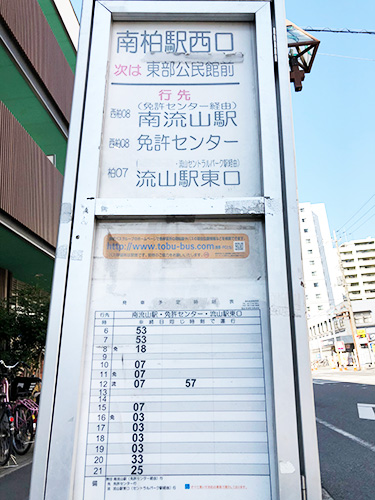 南柏駅西口
次は 東部公民館前
行先
(免許センター経由)
西柏08 南流山駅
西柏08 免許センター
(流山セントラルパーク駅経由)
柏07 流山駅東口
http://www.tobu-bus.com
発車予定時刻表
行先 南流山駅・免許センター・流山駅東口
時 年終日同じ時刻で運行
6 53
7 53
8 免 18
10 07
11 免 07
12 流 07 57
15 07
16 免 03
17 03
18 03
19 03
20 33
21 25